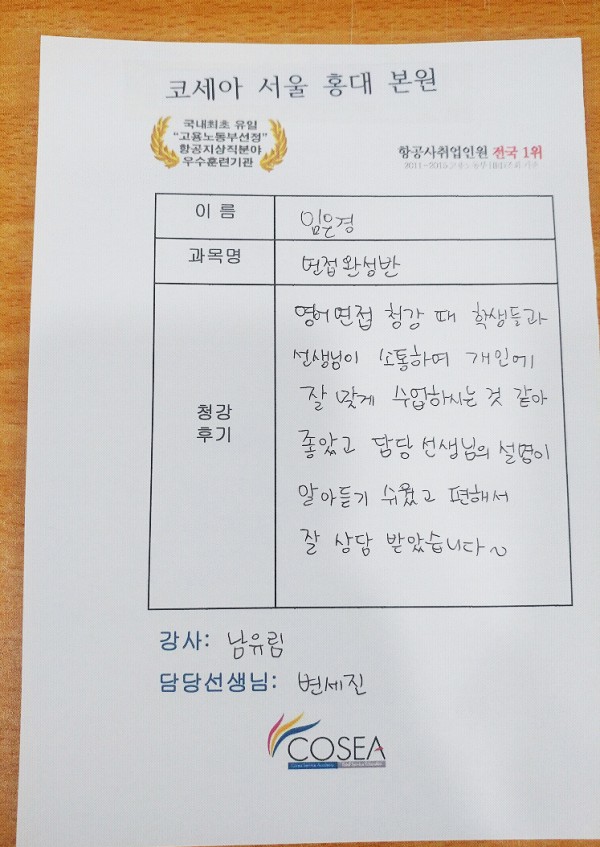 코세아 서울 홍대 본원
국내최초 유일
"고용노동부선정"
항공지상직분야
우수훈련기관
항공사취업인원 전국 1위
이 름
임은경
과목명
면접완성반
청강
후기
영어면접 청강 때 학생들과
선생님이 소통하며 개인에
잘 맞게 수업하시는 것 같아
좋았고 담당선생님의 설명이
알아듣기 쉬웠고 편해서
잘 상담 받았습니다~
강사: 남유림
담당선생님: 변세진
COSEA